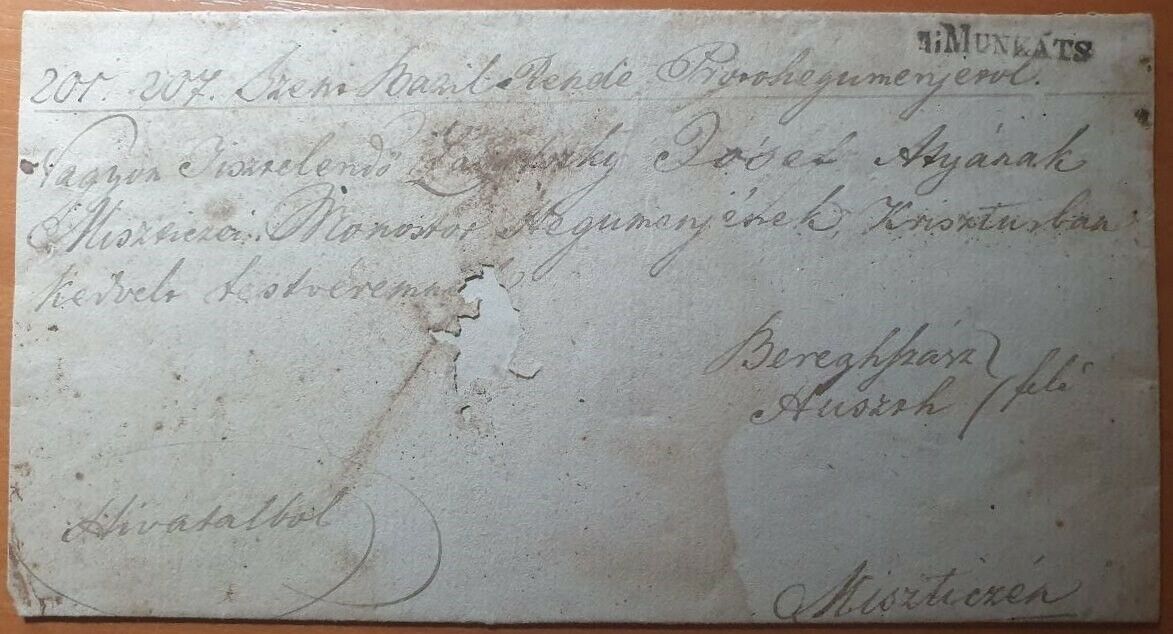 v: MUNKÁTS
201. 207. Szent Bazil Rende Protohegumenjerol.
Nagyon Tisztelendő József Atyának
Miszticzei Monostor Hegumenjének, Krisztusban
Kedvelt testvéremnek
Bereghszász
Huszth / felé
Hivatalbol
Miszticzén